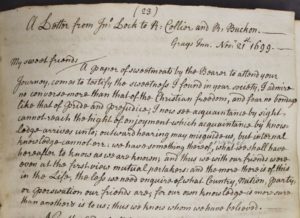 (23)
A Letter from Jno. Lock to R. Collier and R. Buckom.
Grays Inn. Novr. 21st 1699.
My sweet friends
A paper of sweetmeat by the Bearer to attend your
Journey, comes to testify the sweetness I found in your society, I admire
no converse more than that of the Christian freedom, and fear no bondage
like that of pride and prejudice; I now see acquaintance by sight
cannot reach the hight of enjoyment which acquaintance by know-
ledge arrives unto; outward hearing may misguide us, but internal
knowledge cannot err: we have something here of, what we shall have
hereafter to know as we are known; and thus we with our friends were
even at the first view mutual partakers; and the more there is of this
in the Life, the less we need enquire of what Country, Nation, party,
or perswation our friends are; for our own knowledge is more sure
than another's is to us; thus we know whom we have believed.